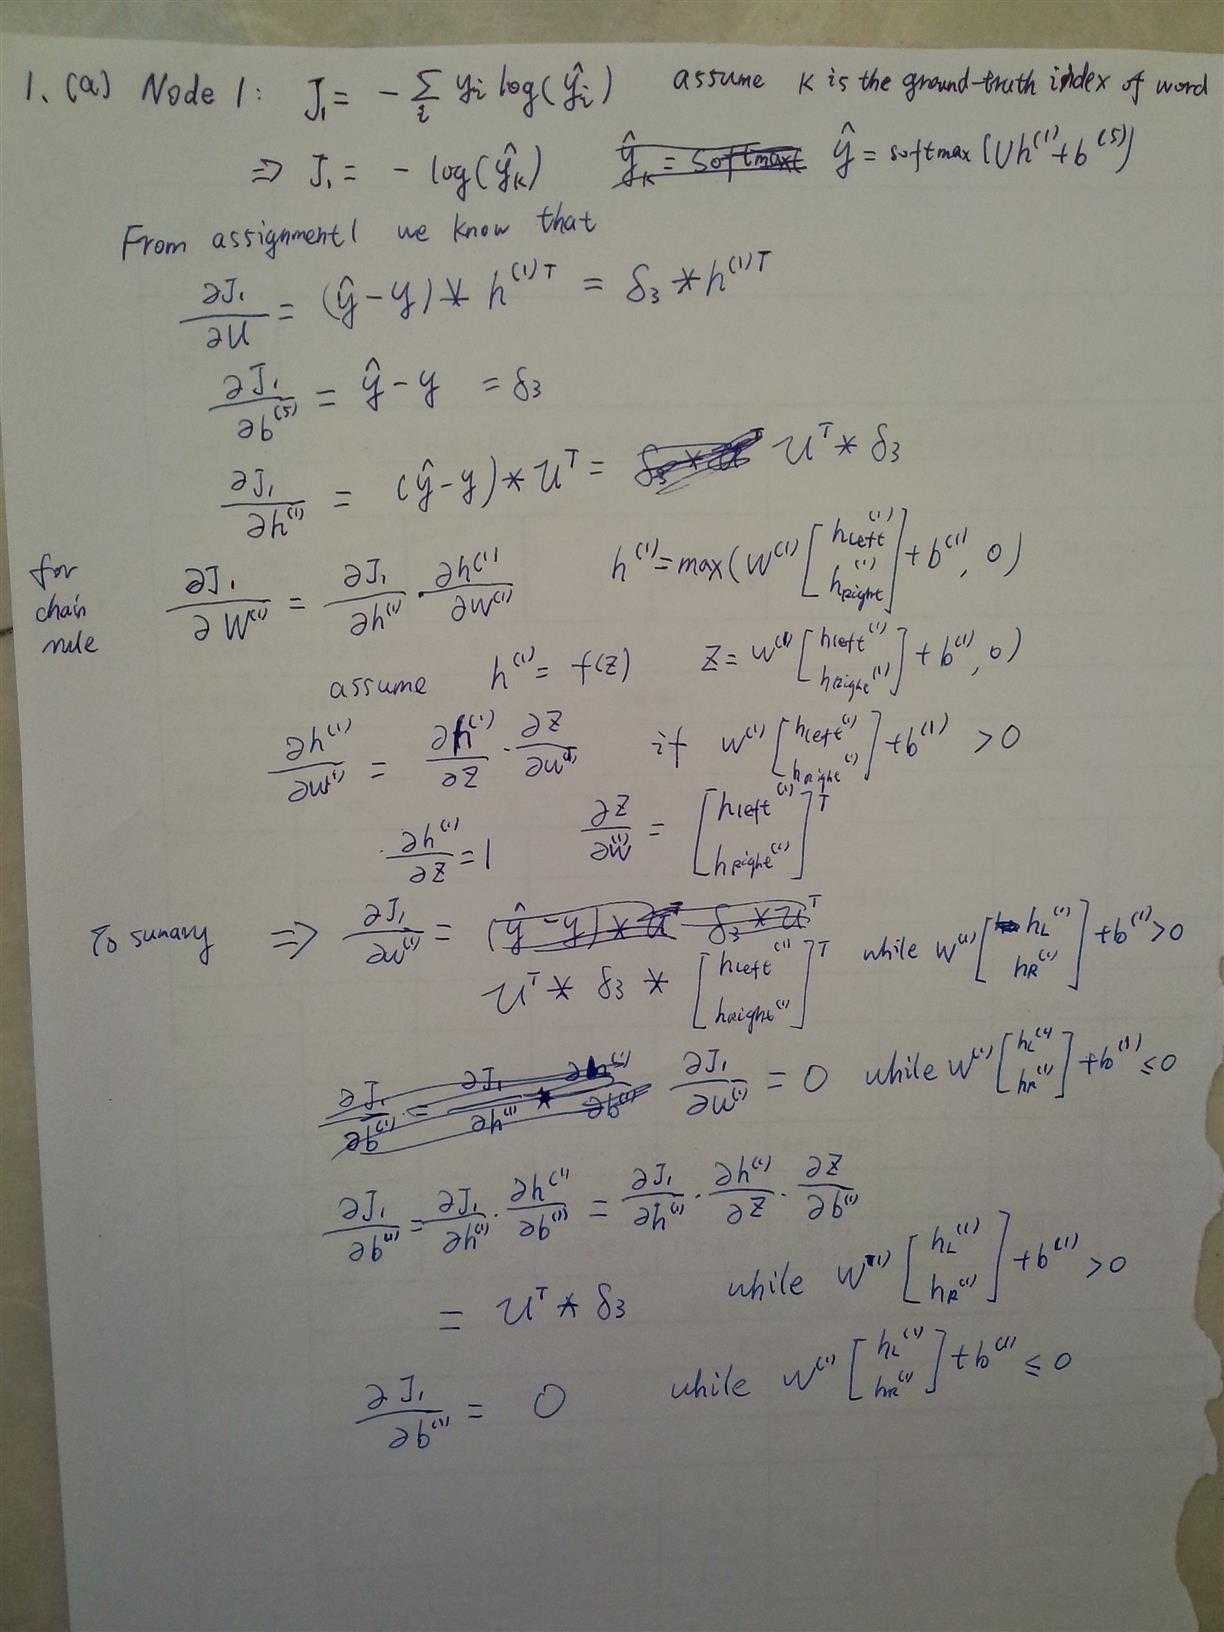 1. (a) Node 1: J₁ = - ∑ᵢ yᵢ log(ŷᵢ) assume K is the ground-truth index of word
⇒ J₁ = - log(ŷ_K) ŷ = softmax(Uh⁽¹⁾+b⁽⁵⁾)
From assignment1 we know that
∂J₁/∂U = (ŷ-y) * h⁽¹⁾ᵀ = δ₃ * h⁽¹⁾ᵀ
∂J₁/∂b⁽⁵⁾ = ŷ-y = δ₃
∂J₁/∂h⁽¹⁾ = (ŷ-y) * Uᵀ = Uᵀ * δ₃
for chain rule ∂J₁/∂W⁽¹⁾ = ∂J₁/∂h⁽¹⁾ · ∂h⁽¹⁾/∂W⁽¹⁾ h⁽¹⁾ = max(W⁽¹⁾ [hLeft⁽¹⁾ hRight⁽¹⁾] + b⁽¹⁾, 0)
assume h⁽¹⁾ = f(z) z = W⁽¹⁾ [hLeft⁽¹⁾ hRight⁽¹⁾] + b⁽¹⁾, 0)
∂h⁽¹⁾/∂W⁽¹⁾ = ∂h⁽¹⁾/∂z · ∂z/∂W⁽¹⁾ if W⁽¹⁾ [hLeft⁽¹⁾ hRight⁽¹⁾] + b⁽¹⁾ > 0
∂h⁽¹⁾/∂z = 1 ∂z/∂W⁽¹⁾ = [hLeft⁽¹⁾ hRight⁽¹⁾]ᵀ
To sumary ⇒ ∂J₁/∂W⁽¹⁾ = Uᵀ * δ₃ * [hLeft⁽¹⁾ hRight⁽¹⁾]ᵀ while W⁽¹⁾ [h_L⁽¹⁾ h_R⁽¹⁾] + b⁽¹⁾ > 0
∂J₁/∂W⁽¹⁾ = 0 while W⁽¹⁾ [h_L⁽¹⁾ h_R⁽¹⁾] + b⁽¹⁾ ≤ 0
∂J₁/∂b⁽¹⁾ = ∂J₁/∂h⁽¹⁾ · ∂h⁽¹⁾/∂b⁽¹⁾ = ∂J₁/∂h⁽¹⁾ · ∂h⁽¹⁾/∂z · ∂z/∂b⁽¹⁾
= Uᵀ * δ₃ while W⁽¹⁾ [h_L⁽¹⁾ h_R⁽¹⁾] + b⁽¹⁾ > 0
∂J₁/∂b⁽¹⁾ = 0 while W⁽¹⁾ [h_L⁽¹⁾ h_R⁽¹⁾] + b⁽¹⁾ ≤ 0